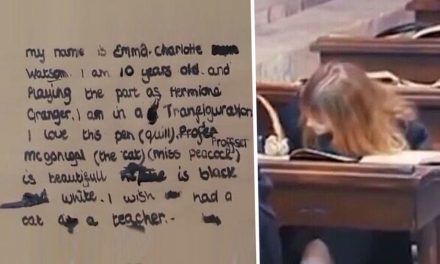 my name is Emma. Charlotte
Watson. I am 10 years old. and
Playing the part as Hermione
Granger. I am in a Transfiguration
I love this pen (quill). Profer
Proffsor
mcgonugal (the cat) (miss peacock)
is beautifull is black
white. I wish had a
cat a teacher.